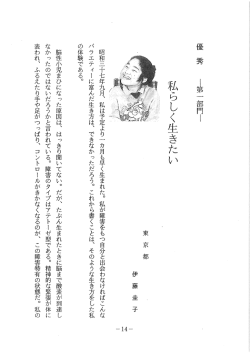 優秀 ―第一部門―
私らしく生きたい
東京都 伊藤圭子
昭和三十七年九月、私は予定より一カ月も早く生まれた。もし、
バラエティーに富んだ生き方は、できなかっただろう。これから書くことは、そのような生き方をした私
の体験である。
脳性小児まひになった原因は、はっきり聞いてない。だが、たぶん生まれたときに脳まで酸素が回達し
なかったのではないだろうかと言われている。障害のタイプはアテトーゼ型である。精神的な緊張が体に
表われ、ふるえたり手や足がつっぱり、コントロールがきかなくなるのが、この障害特有の状態だ。私の
－14－